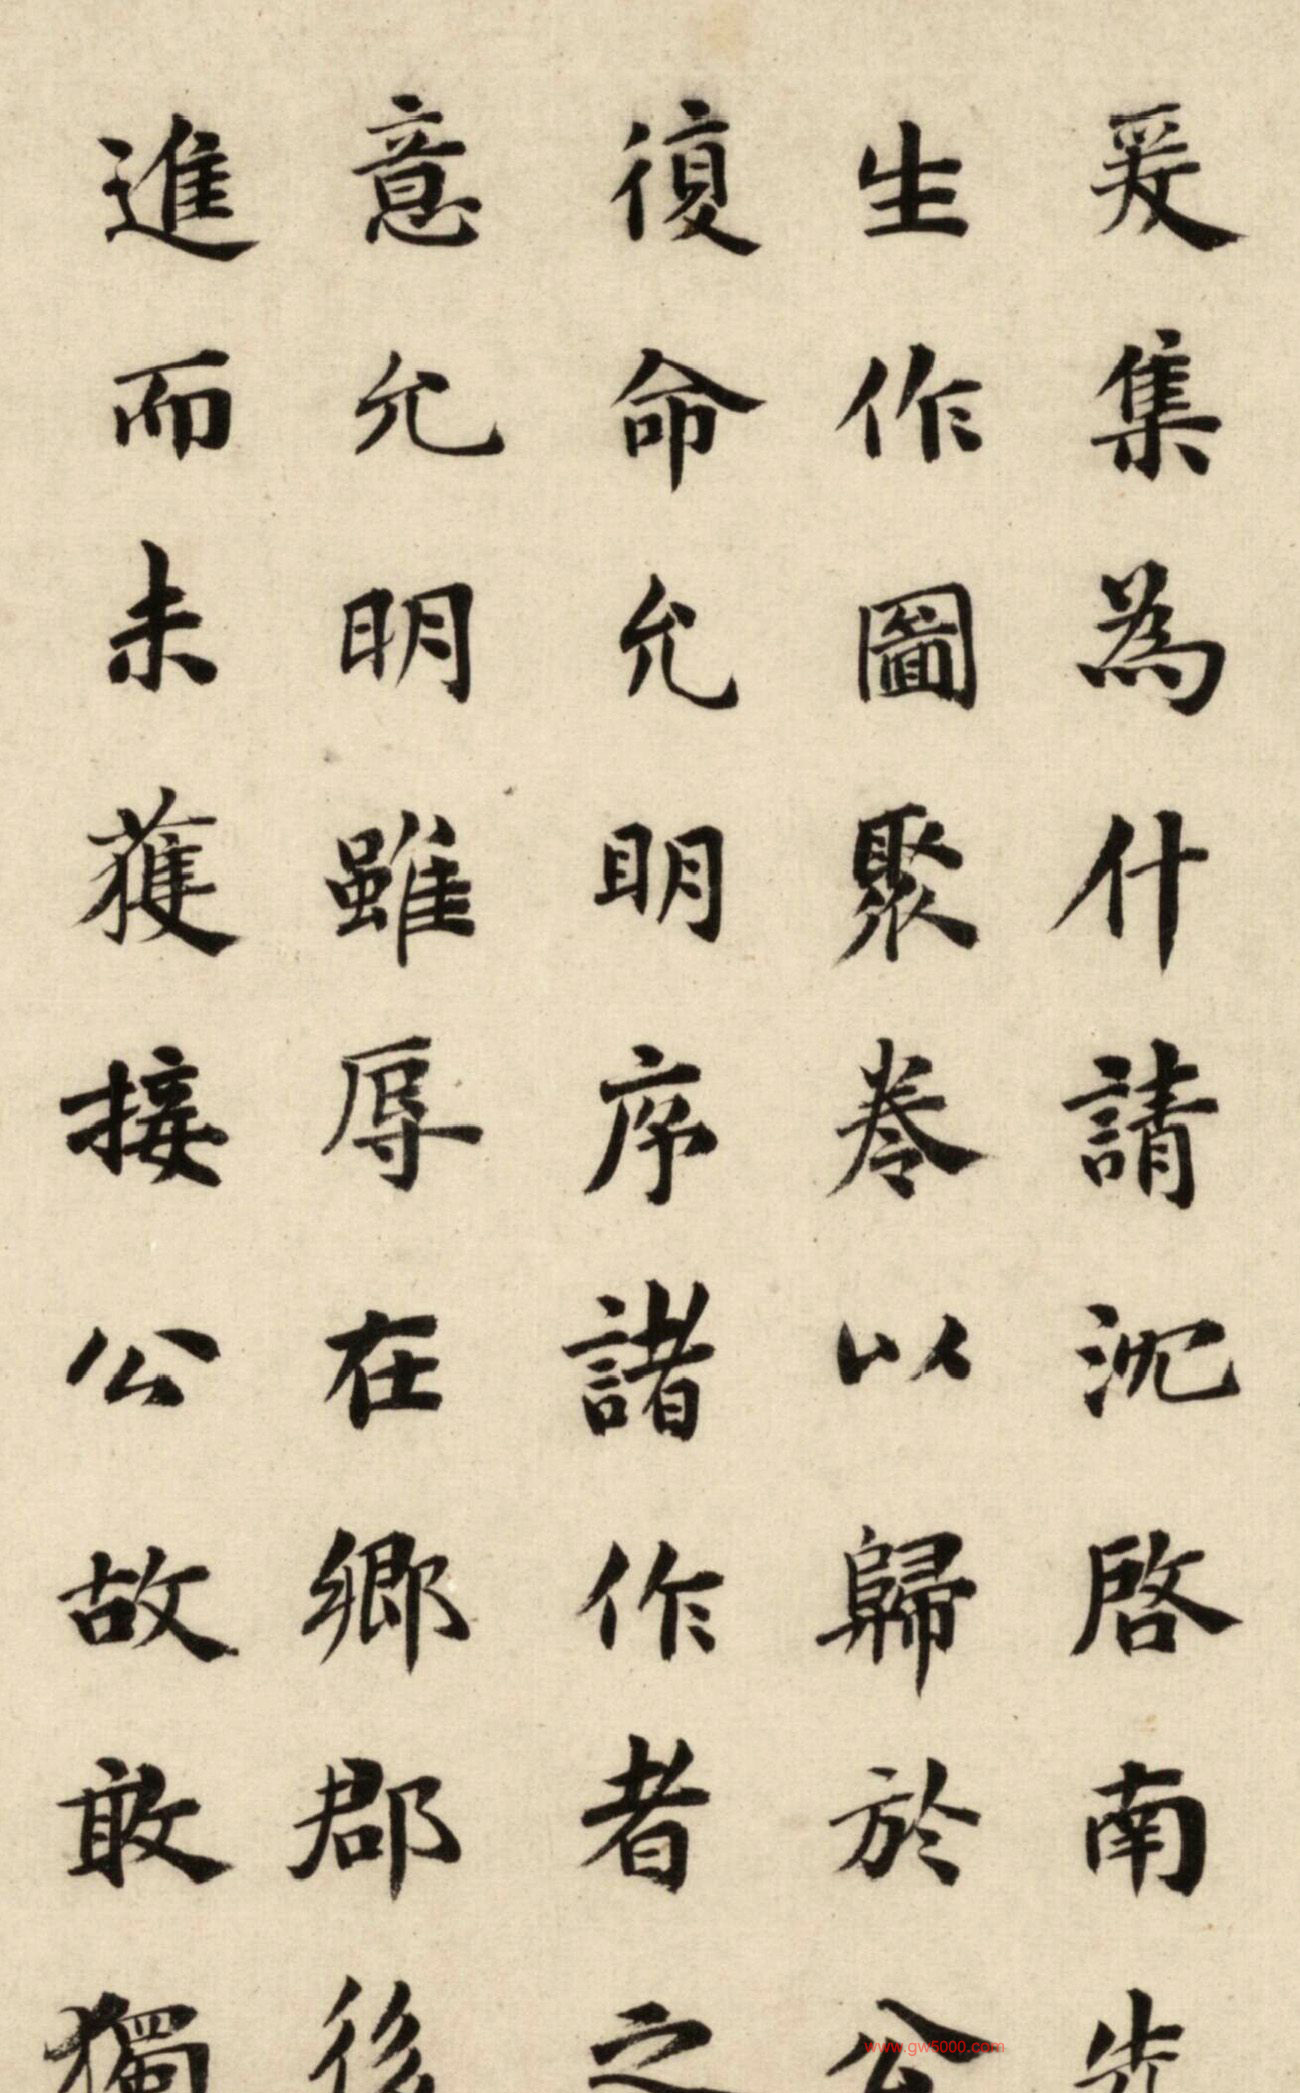 爰集為什請沈啓南先
生作圖聚卷以歸於公
復命允明序諸作者之
意允明雖辱在鄉郡後
進而未獲接公故敢獨
www.gw5000.com